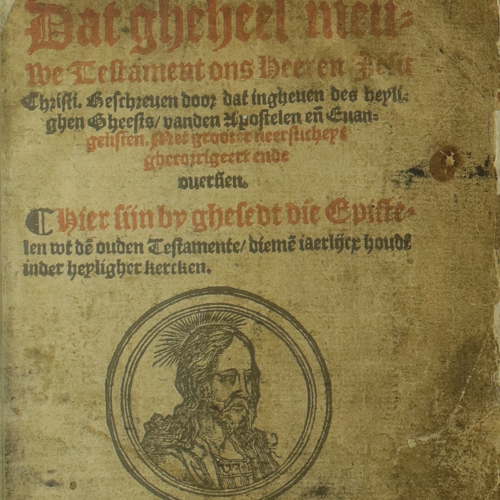 Dat gheheel nieu-
we Testament ons Heeren Jesu
Christi. Geschreuen door dat ingheuen des heyli-
ghen Gheests/ vanden Apostelen eñ Euan-
gelisten. Met grooter neersticheyt
ghecorrigeert ende
ouersien.
¶ Hier sijn by ghesedt die Episte-
len wt dē ouden Testamente/ diemē iaerlijcx houdt
inder heyligher kercken.